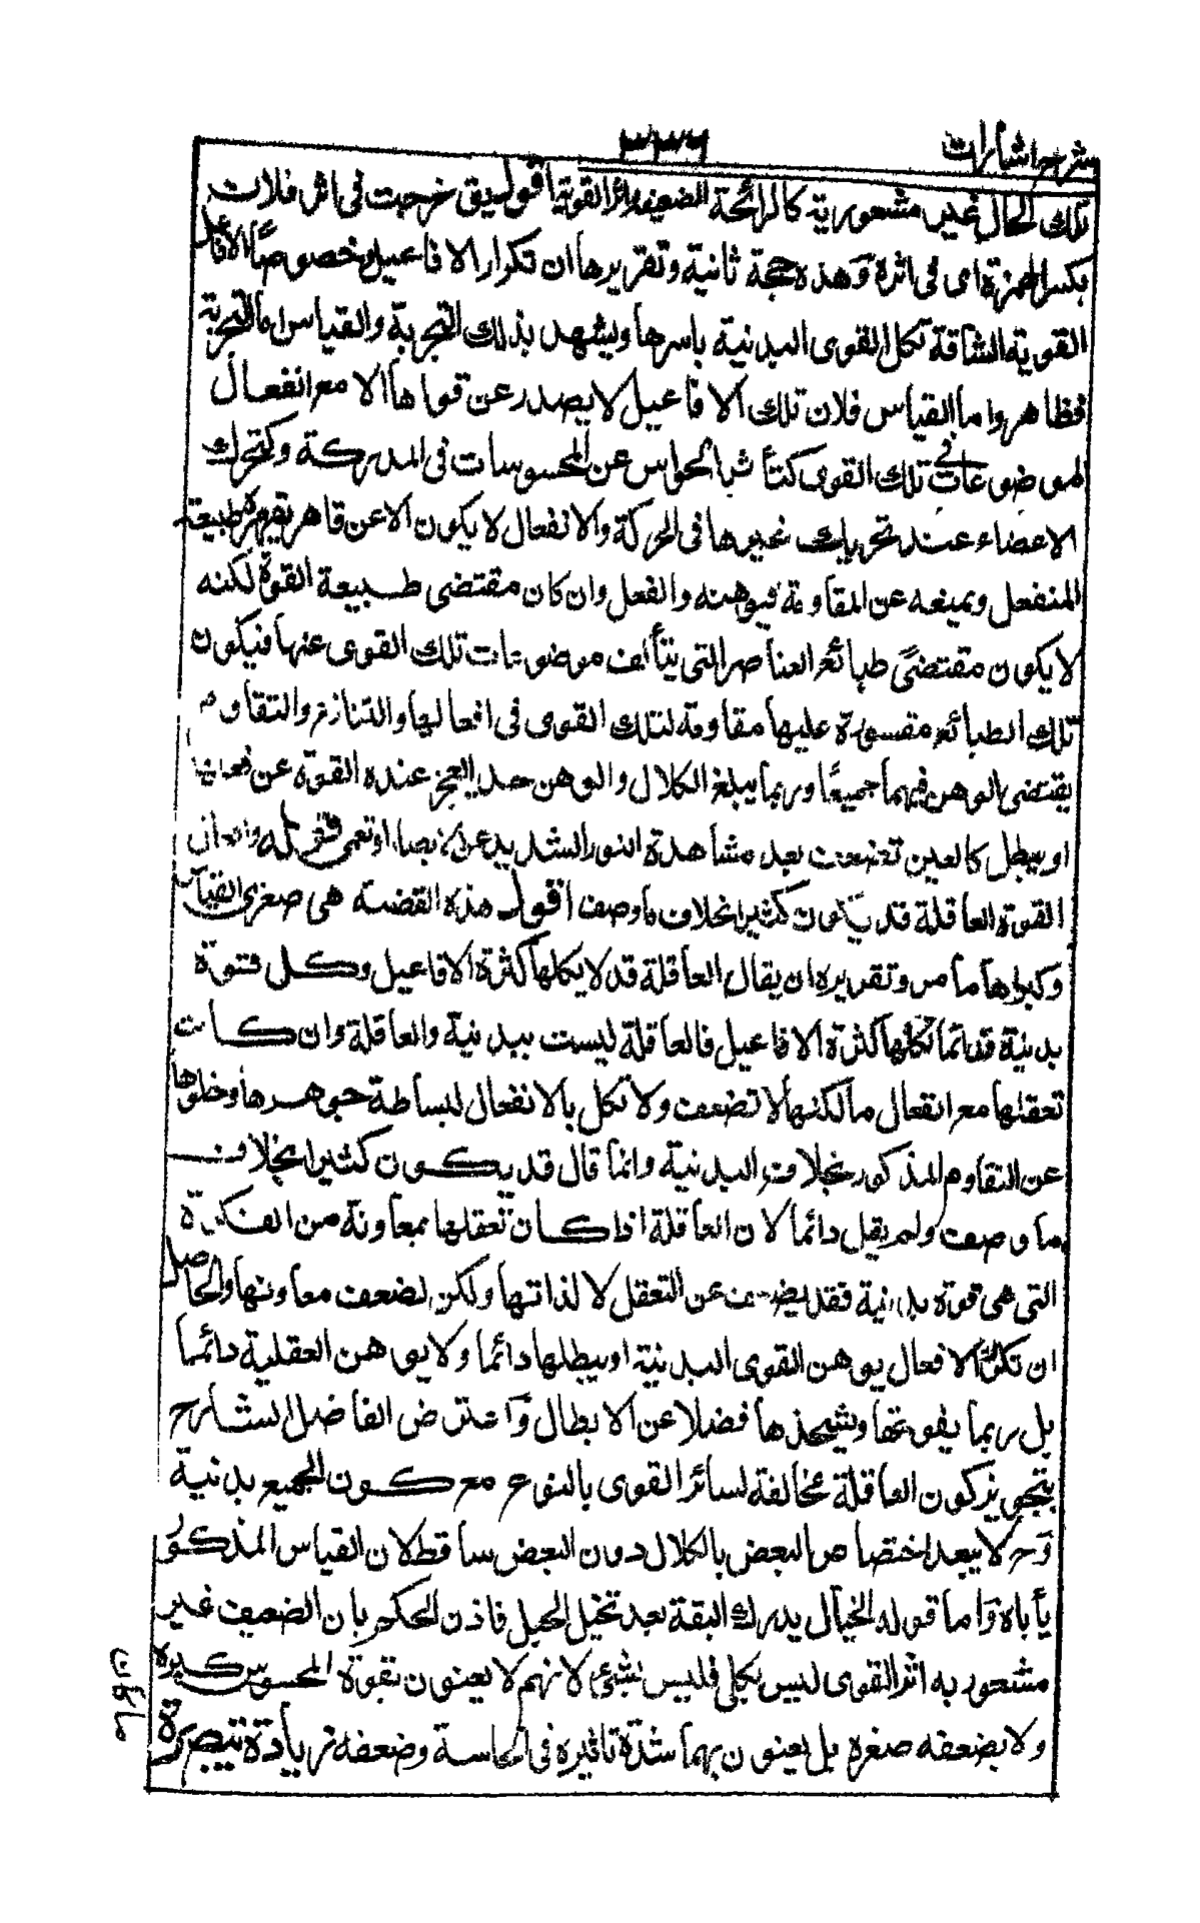 شرح اشارات
٣٣٦
تلك الحال غير مشعور بها كالرائحة الضعيفة اثر القوية اقول يق خرجت فى اثر فلان
بكسر الهمزة اى فى اثره وهذه حجة ثانية وتقريرها ان تكرار الافاعيل وخصوصًا الافاعيل
القوية الشاقة تكل القوى البدنية باسرها ويشهد بذلك التجربة والقياس اما التجربة
فظاهر واما القياس فلان تلك الافاعيل لا يصدر عن قواها الا مع انفعال
لموضوعات تلك القوى كتأثر الحواس عن المحسوسات فى المدركة وكتحرك
الاعضاء عند تحريك غيرها فى المحركة والانفعال لا يكون الا عن قاهر يقهر طبيعة
المنفعل ويمنعه عن المقاومة فيوهنه والفعل وان كان مقتضى طبيعة القوة لكنه
لا يكون مقتضىً طبائع العناصر التى يتألف موضوعات تلك القوى عنها فيكون
تلك الطبائع مقسورة عليها مقاومة لتلك القوى فى افعالها والتنازع والتقاوم
يقتضى الوهن فيهما جميعًا وربما يبلغ الكلال والوهن حد اليعجز عنده القوة عن فعلها
او يبطل كالعين تضعف بعد مشاهدة النور الشديد عن الابصار او تعمى قوله وافعال
القوة العاقلة قد يكون كثيرا بخلاف ما وصف اقول هذه القضية هى صغرى القياس
وكبراها ما مر وتقريره ان يقال العاقلة قد لا يكلها كثرة الافاعيل وكل قوة
بدنية فدائما تكلها كثرة الافاعيل فالعاقلة ليست ببدنية والعاقلة وان كانت
تعقلها مع انفعال ما لكنها لا تضعف ولا تكل بالانفعال لبساطة جوهرها وخلوها
عن التقاوم المذكور بخلاف البدنية وانما قال قد يكون كثيرا بخلاف
ما وصف ولم يقل دائما لان العاقلة اذا كان تعقلها بمعاونة من الفكرة
التى هى قوة بدنية فقد يضعف عن التعقل لا لذاتها ولكن لضعف معاونها والحاصل
ان تكرر الافعال يوهن القوى البدنية او يبطلها دائما ولا يوهن العقلية دائما
بل ربما يقويها ويشحذها فضلا عن الابطال واعترض الفاضل الشارح
بتجويز كون العاقلة مخالفة لسائر القوى بالنوع مع كون الجميع بدنية
وح لا يبعد اختصاص البعض بالكلال دون البعض ساقط لان القياس المذكور
يأباه واما قوله الخيال يدرك البقة بعد تخيل الجبل فاذن الحكم بان الضعيف غير
مشعور به اثر القوى ليس بكلى فليس بشئ لانهم لا يعنون بقوة المحسوس كبره
ولا بضعفه صغره بل يعنون بهما شدة تاثيره فى الحاسة وضعفه زيادة تبصرة